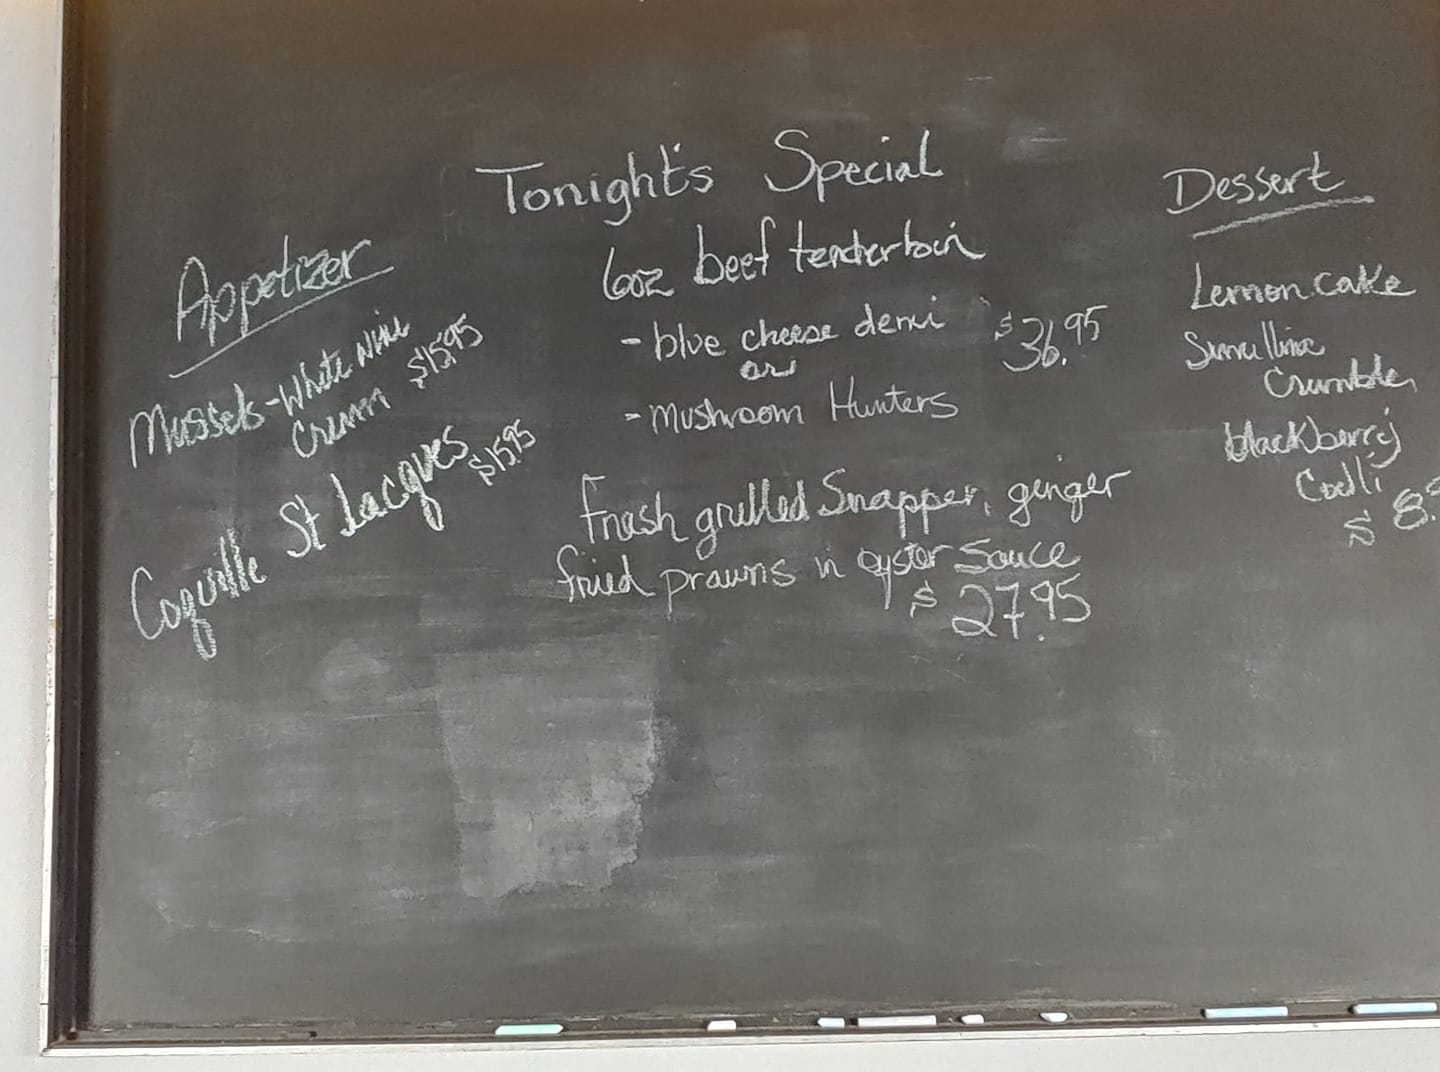 Tonight's Special
Appetizer
Mussels - White wine
Cream $15.95
Coquille St Jacques
$15.95
6oz beef tenderloin
- blue cheese demi $36.95
or
- Mushroom Hunters
Fresh grilled Snapper, ginger
fried prawns in oyster Sauce
$27.95
Dessert
Lemon cake
Crumble,
blackberry
$8.